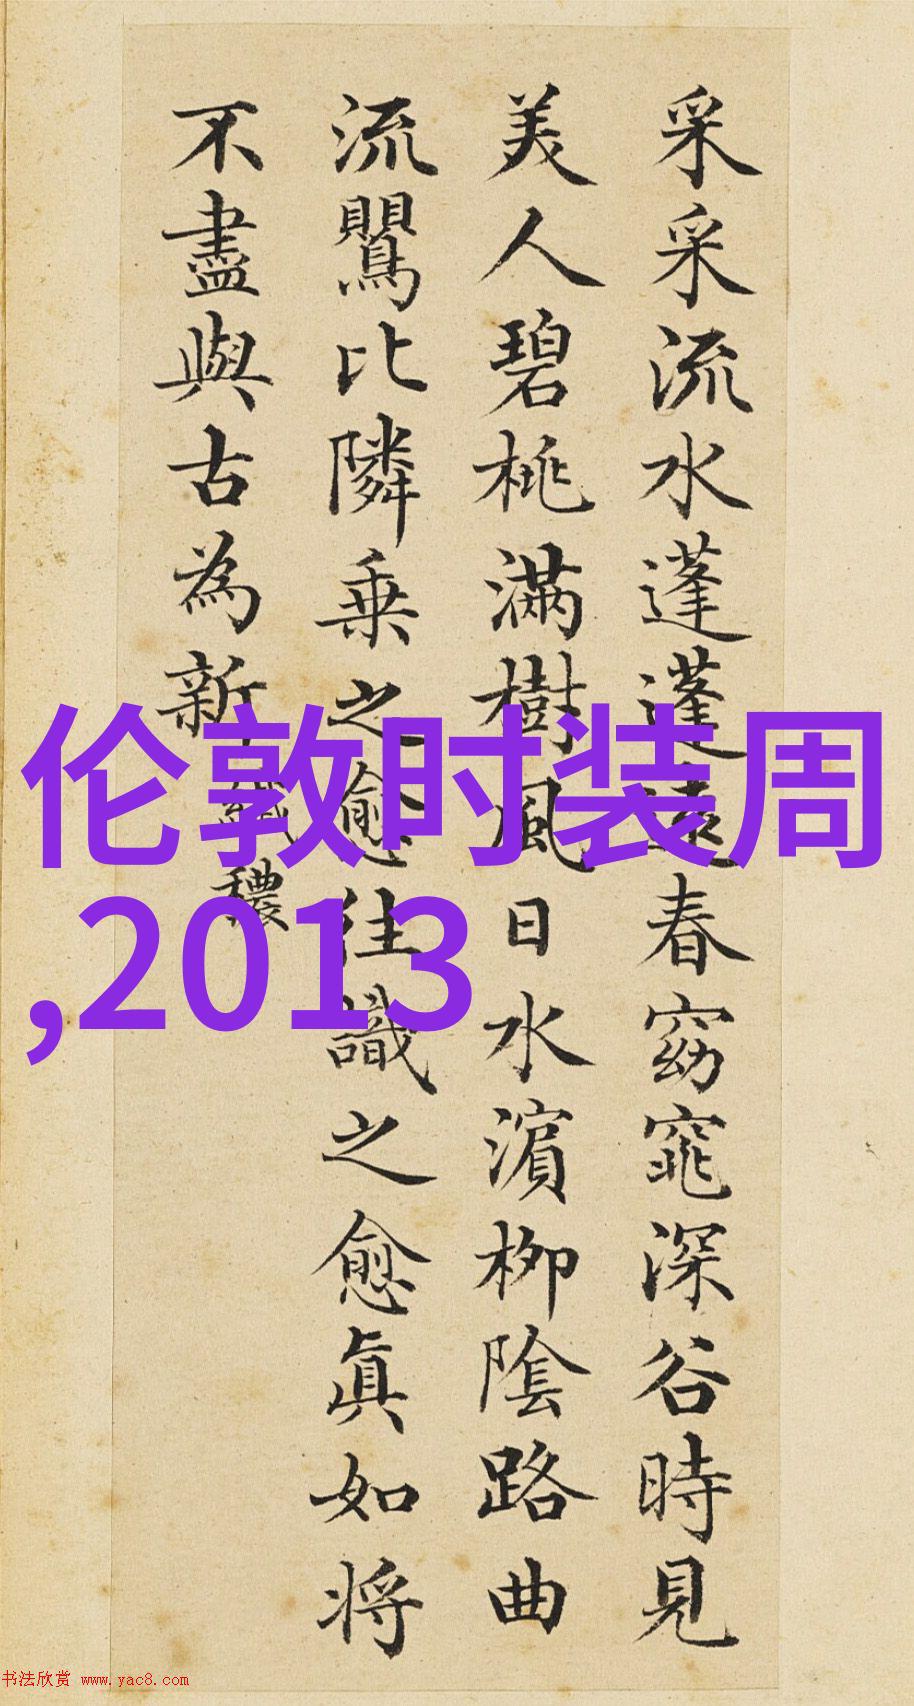 采采流水蓬蓬遠春窈窕深谷時見
美人碧桃滿樹風日水濵柳陰路曲
流鸎比隣乗之愈往識之愈眞如将
不盡與古為新
纎穠
伦敦时装周
,2013
书法欣赏 www.yac8.com